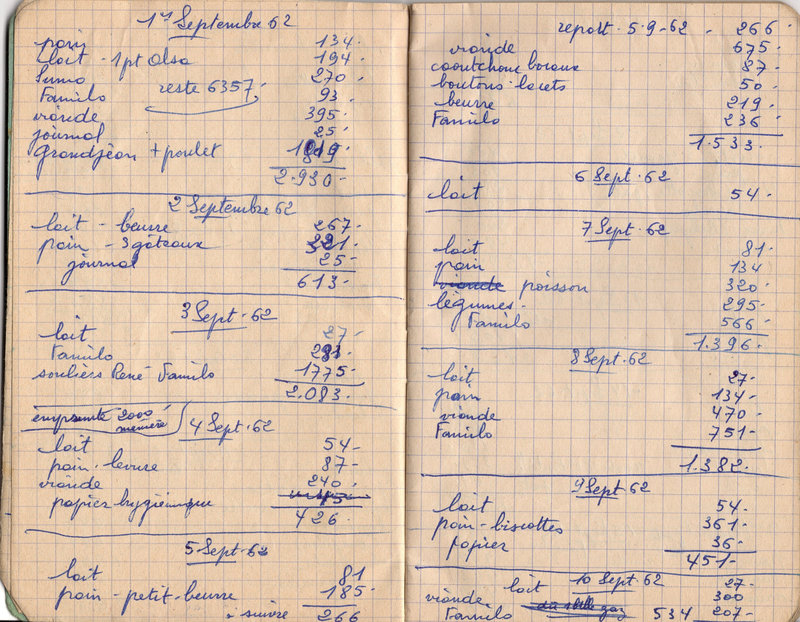 1er Septembre 62
pain 134.
lait - 1pt Olsa 194.
Sumo 270.
reste 6357.
Familo 93.
viande 395.
journal 25.
Grandjean + poulet 1819
2.930.
2 Septembre 62
lait - beurre 267.
pain - 3 gâteaux 321.
journal 25.
613.
3 Sept. 62
lait 27.
Familo 281.
souliers René Familo 1775.
2.083.
emprunté 2000
mémère
4 Sept. 62
lait 54.
pain. levure 87.
viande 240.
papier hygiénique 45
426.
5 Sept. 62
lait 81
pain - petit-beurre 185.
à suivre 266
report. 5-9-62. 266.
viande 675.
caoutchouc bocaux 87.
boutons. lacets 50.
beurre 219.
Familo 236.
1.533.
6 Sept. 62
lait 54.
7 Sept. 62
lait 81.
pain 134
viande poisson 320.
légumes. 295.
Familo 566.
1.396.
8 Sept. 62
lait 27.
pain 134.
viande 470.
Familo 751.
1.382.
9 Sept. 62
lait 54.
pain-biscottes 361.
papier 36.
451.
10 Sept. 62
lait 27.
viande 300
Familo 534 207.